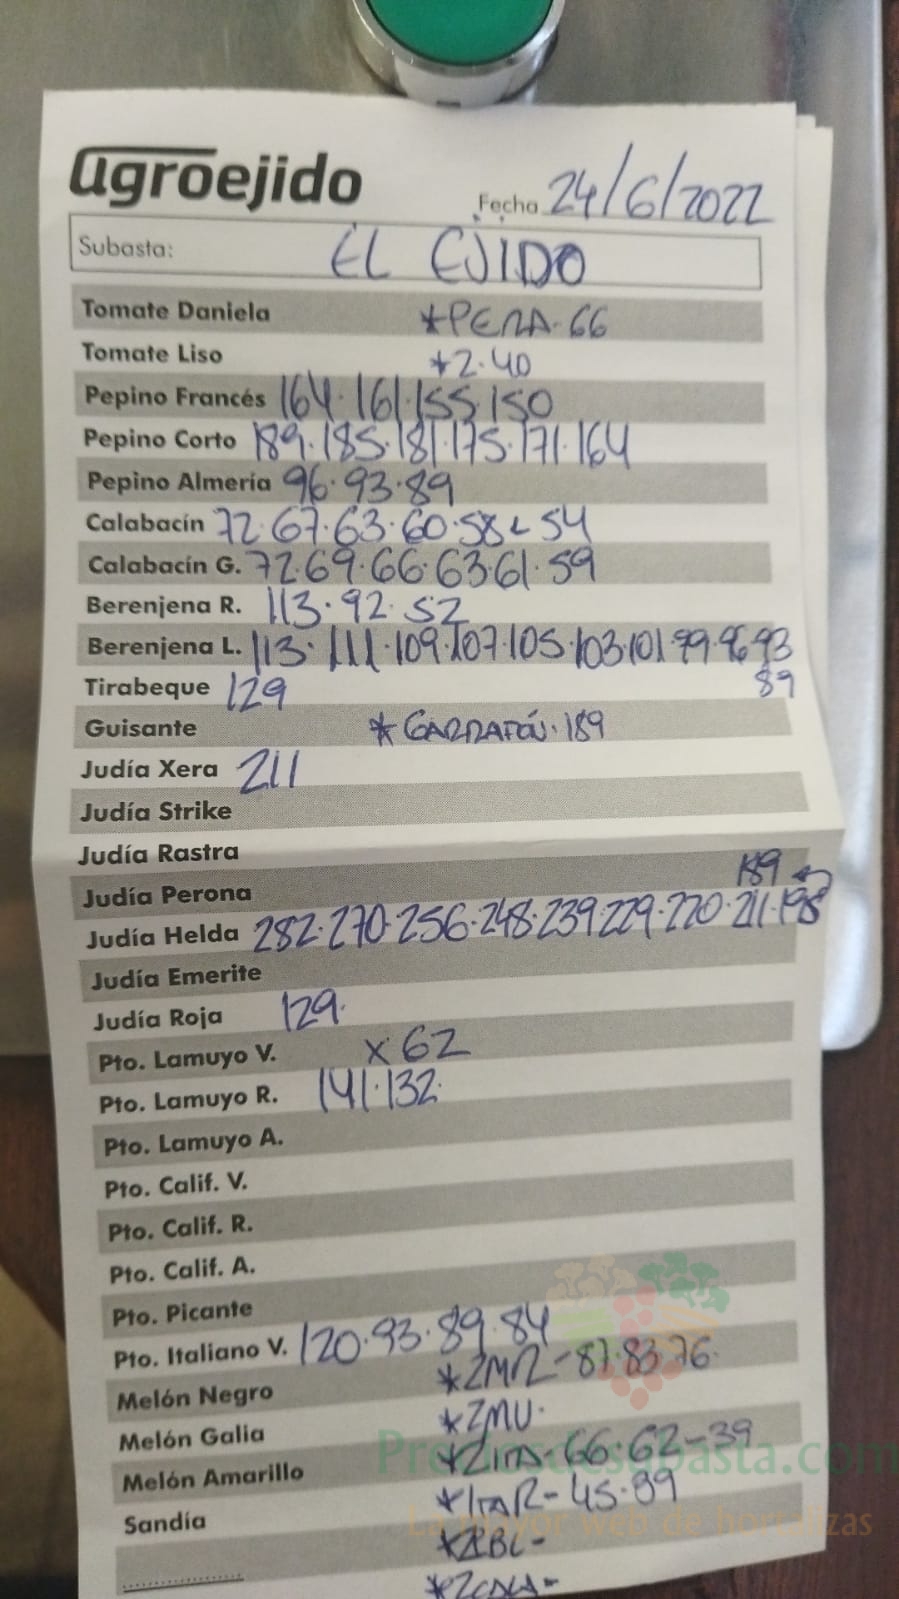 agroejido
Fecha 24/6/2022
Subasta: EL EJIDO
Tomate Daniela *PERA·66
Tomate Liso *2·40
Pepino Francés 164·161·155·150
Pepino Corto 189·185·181·175·171·164
Pepino Almería 96·93·89
Calabacín 72·67·63·60·58 54
Calabacín G. 72·69·66·63·61·59
Berenjena R. 113·92·52
Berenjena L. 113·111·109·107·105·103·101·99·96·93
89
Tirabeque 129
Guisante *GARRAFÓN·189
Judía Xera 211
Judía Strike
Judía Rastra
189
Judía Perona
Judía Helda 282·270·256·248·239·229·220·211·198
Judía Emerite
Judía Roja 129·
Pto. Lamuyo V. x 62
Pto. Lamuyo R. 141·132·
Pto. Lamuyo A.
Pto. Calif. V.
Pto. Calif. R.
Pto. Calif. A.
Pto. Picante
Pto. Italiano V. 120·93·89·84
*2MR-87·83·76·
Melón Negro
*2MU·
Melón Galia
66·62-39
Melón Amarillo
45·39
Sandía
Preciosdesubasta.com
La mayor web de hortalizas